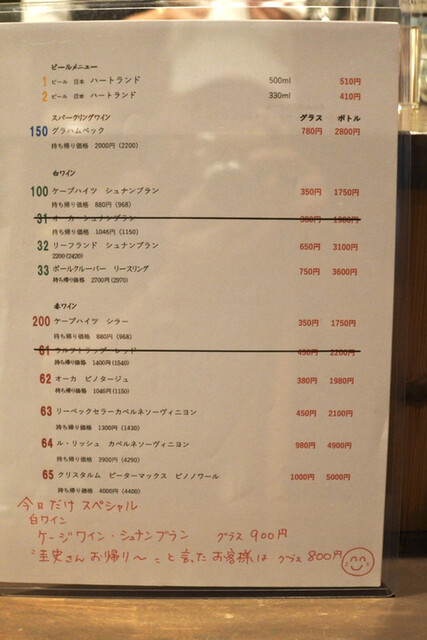 ビールメニュー
1 ビール 日本 ハートランド 500ml 510円
2 ビール 日本 ハートランド 330ml 410円
スパークリングワイン グラス ボトル
150 グラハムベック 780円 2800円
持ち帰り価格 2000円 (2200)
白ワイン
100 ケープハイツ シュナンブラン 350円 1750円
持ち帰り価格 880円 (968)
31 オーカ シュナンブラン 380円 1980円
持ち帰り価格 1046円 (1150)
32 リーフランド シュナンブラン 650円 3100円
2200 (2420)
33 ポールクルーバー リースリング 750円 3600円
持ち帰り価格 2700円 (2970)
赤ワイン
200 ケープハイツ シラー 350円 1750円
持ち帰り価格 880円 (968)
61 ウルフトラップ レッド 450円 2200円
持ち帰り価格 1400円 (1540)
62 オーカ ピノタージュ 380円 1980円
持ち帰り価格 1046円 (1150)
63 リーベックセラーカベルネソーヴィニヨン 450円 2100円
持ち帰り価格 1300円 (1430)
64 ル・リッシュ カベルネソーヴィニヨン 980円 4900円
持ち帰り価格 3900円 (4290)
65 クリスタルム ピーターマックス ピノノワール 1000円 5000円
持ち帰り価格 4000円 (4400)
今日だけ スペシャル
白ワイン
ケージワイン・シュナンブラン グラス 900円
"圭史さんお帰り〜" と言ったお客様は グラス 800円